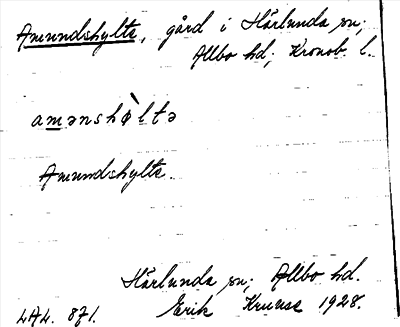 Amundshylte, gård i Härlunda sn;
Allbo hd; Kronob. l.
amənshø̀ltə
Amundshylte.
Härlunda sn; Allbo hd.
LAL. 871. Erik Kruuse 1928.